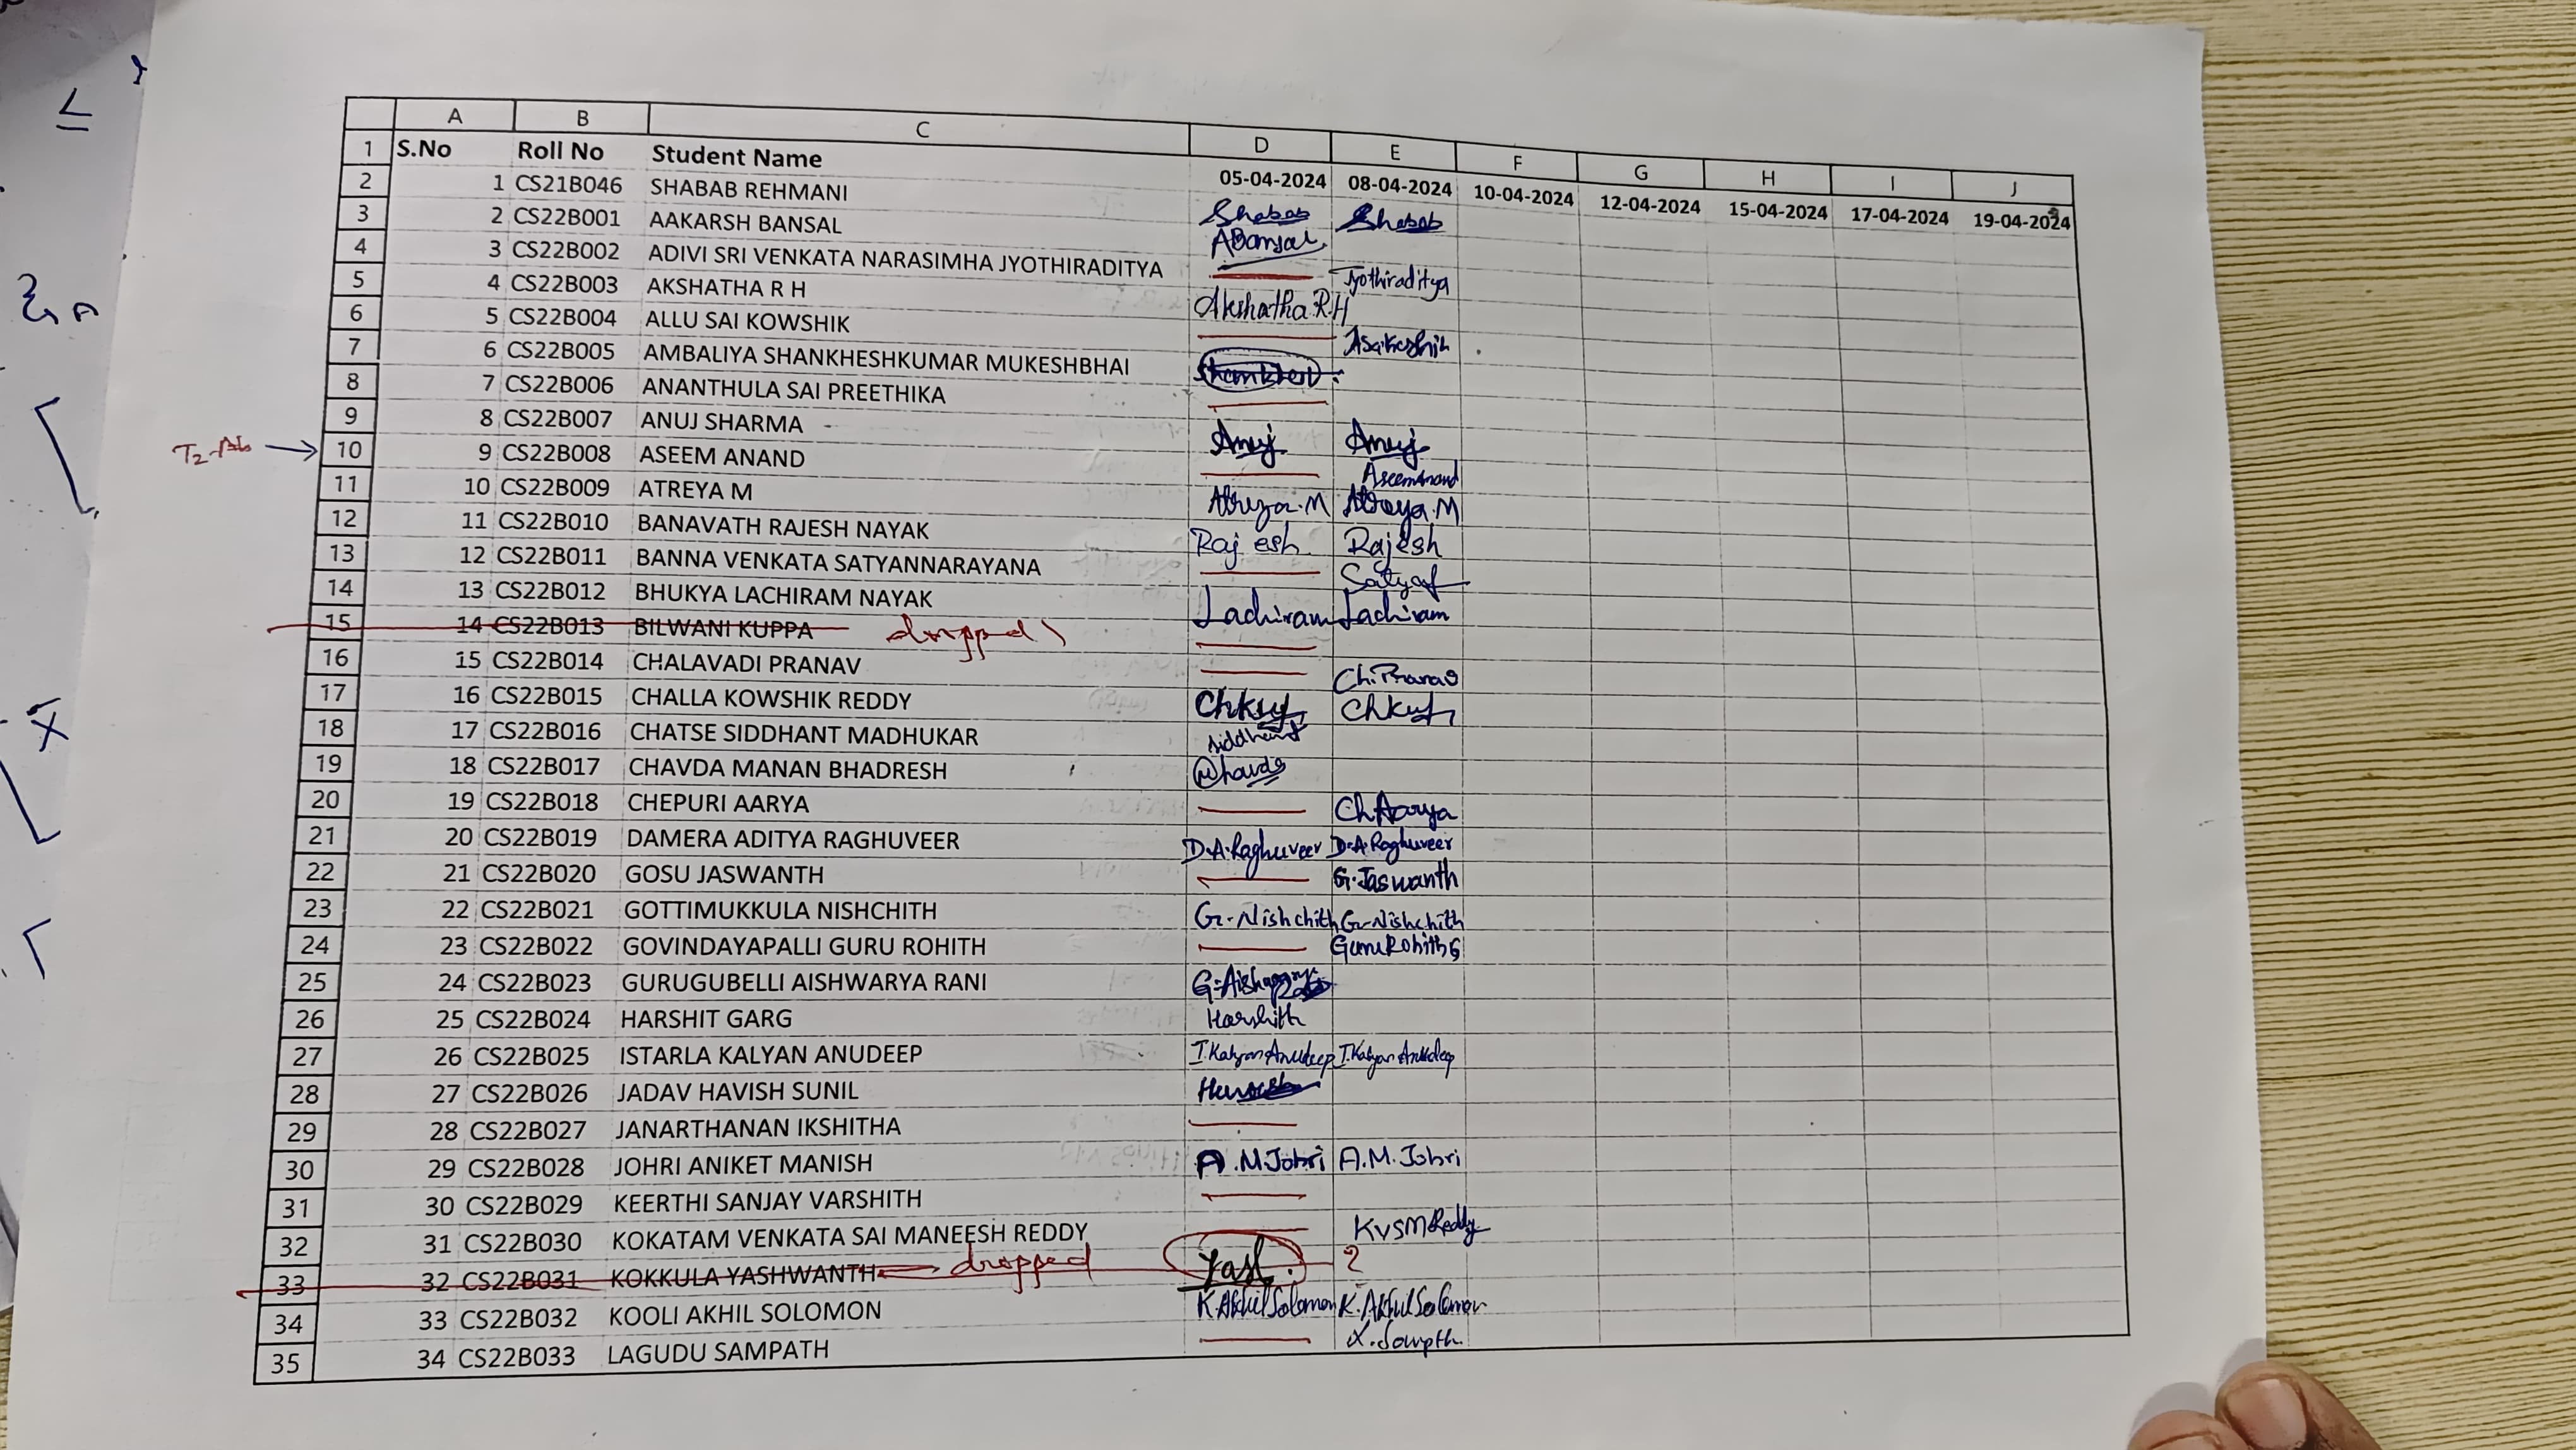 A B C D E F G H I J
1 S.No Roll No Student Name 05-04-2024 08-04-2024 10-04-2024 12-04-2024 15-04-2024 17-04-2024 19-04-2024
2 1 CS21B046 SHABAB REHMANI Shabab Shabab
3 2 CS22B001 AAKARSH BANSAL ABansal
4 3 CS22B002 ADIVI SRI VENKATA NARASIMHA JYOTHIRADITYA Jyothiraditya
5 4 CS22B003 AKSHATHA R H Akshatha.R.H
6 5 CS22B004 ALLU SAI KOWSHIK
7 6 CS22B005 AMBALIYA SHANKHESHKUMAR MUKESHBHAI
8 7 CS22B006 ANANTHULA SAI PREETHIKA
9 8 CS22B007 ANUJ SHARMA Anuj Anuj
T2-Ab → 10 9 CS22B008 ASEEM ANAND AseemAnand
11 10 CS22B009 ATREYA M Atreya.M Atreya.M
12 11 CS22B010 BANAVATH RAJESH NAYAK Rajesh Rajesh
13 12 CS22B011 BANNA VENKATA SATYANNARAYANA
14 13 CS22B012 BHUKYA LACHIRAM NAYAK Lachiram Lachiram
15 14 CS22B013 BILWANI KUPPA dropped
16 15 CS22B014 CHALAVADI PRANAV Ch.Pranav
17 16 CS22B015 CHALLA KOWSHIK REDDY
18 17 CS22B016 CHATSE SIDDHANT MADHUKAR Siddhant
19 18 CS22B017 CHAVDA MANAN BHADRESH
20 19 CS22B018 CHEPURI AARYA Ch Aarya
21 20 CS22B019 DAMERA ADITYA RAGHUVEER D.A.Raghuveer D.A.Raghuveer
22 21 CS22B020 GOSU JASWANTH G.Jaswanth
23 22 CS22B021 GOTTIMUKKULA NISHCHITH G.Nishchith G.Nishchith
24 23 CS22B022 GOVINDAYAPALLI GURU ROHITH GuruRohithG
25 24 CS22B023 GURUGUBELLI AISHWARYA RANI
26 25 CS22B024 HARSHIT GARG Harshith
27 26 CS22B025 ISTARLA KALYAN ANUDEEP I.Kalyan Anudeep I.Kalyan Anudeep
28 27 CS22B026 JADAV HAVISH SUNIL
29 28 CS22B027 JANARTHANAN IKSHITHA
30 29 CS22B028 JOHRI ANIKET MANISH A.M.Johri A.M.Johri
31 30 CS22B029 KEERTHI SANJAY VARSHITH
32 31 CS22B030 KOKATAM VENKATA SAI MANEESH REDDY KVSMReddy
33 32 CS22B031 KOKKULA YASHWANTH → dropped Yash. ?
34 33 CS22B032 KOOLI AKHIL SOLOMON K.Akhil Solomon K.Akhil Solomon
35 34 CS22B033 LAGUDU SAMPATH